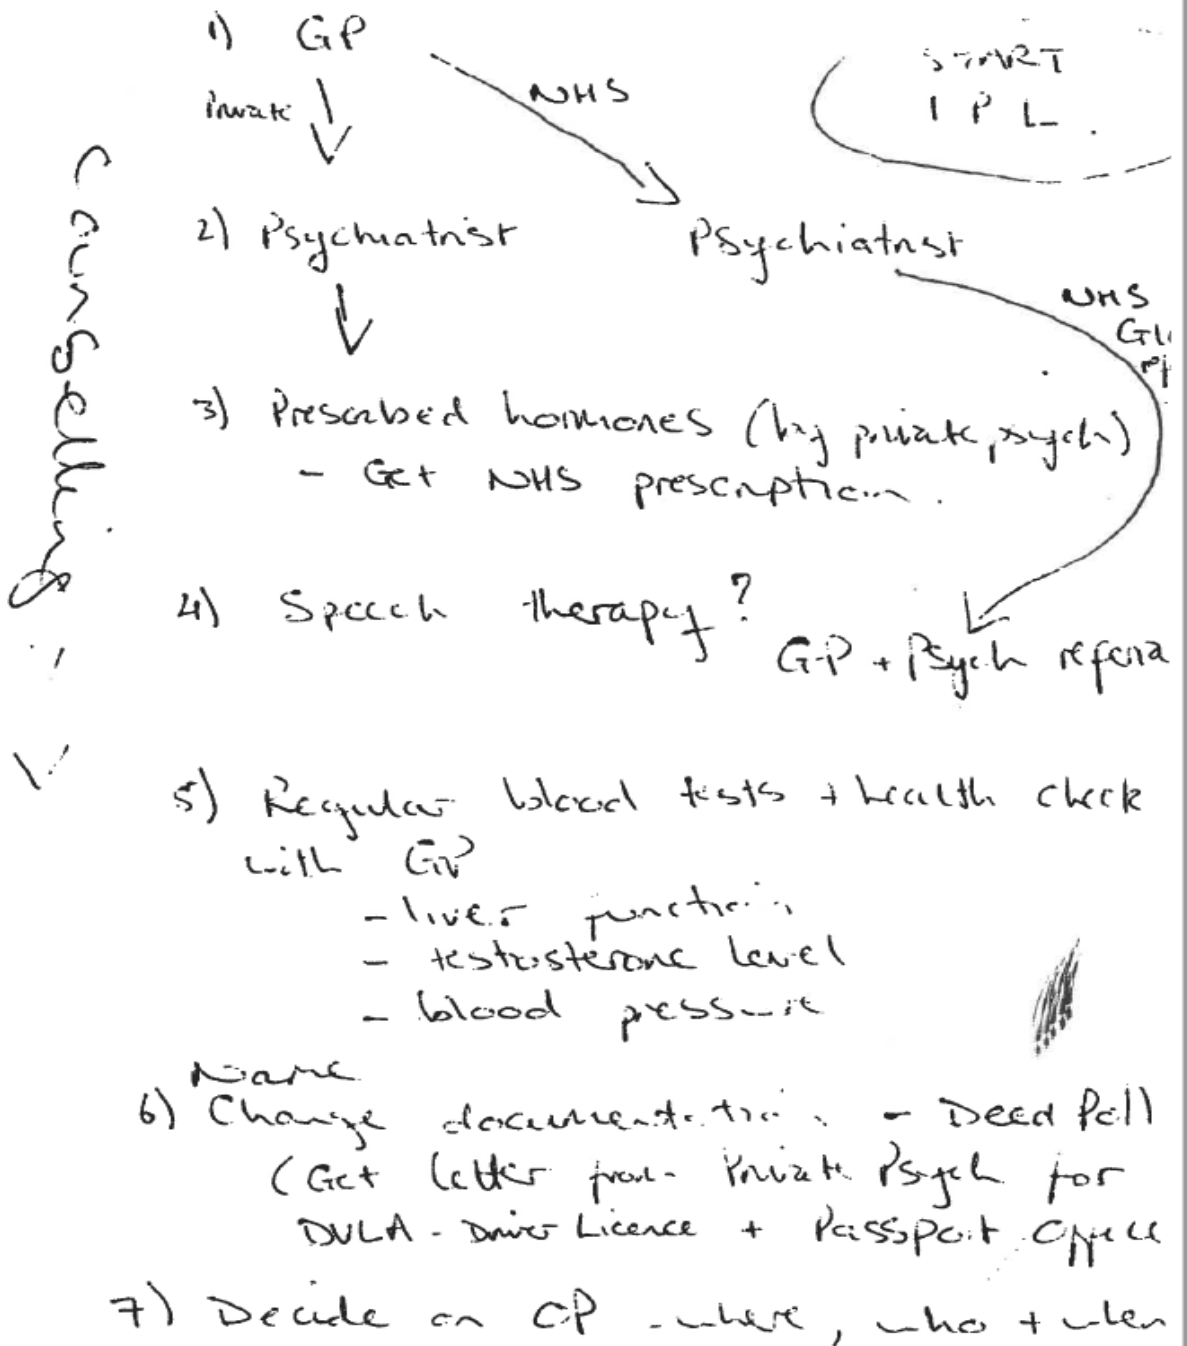 1) GP
Private
NHS
START
I P L
Counselling
2) Psychiatrist
Psychiatrist
NHS
3) Prescribed hormones (by private psych)
- Get NHS prescription.
4) Speech therapy?
GP + Psych referra
5) Regular blood tests + health check
with GP
- liver function
- testosterone level
- blood pressure
Name
6) Change documentation - Deed Poll
(Get letter from Private Psych for
DVLA - Driver Licence + Passport Office
7) Decide on OP - where, who + when